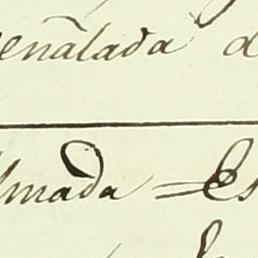 eñalada d
lmada = Es